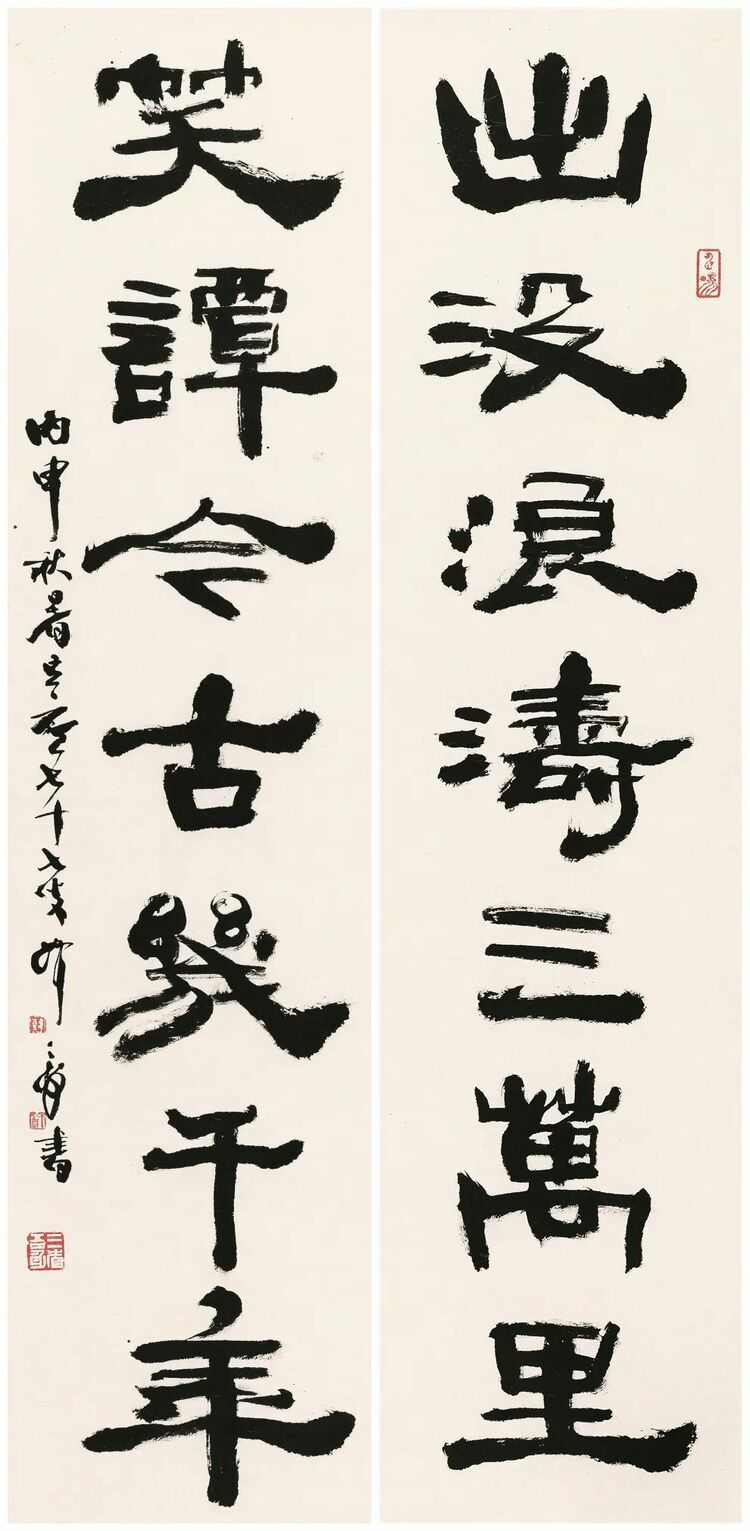 出没浪濤三萬里
笑譚今古幾千年
丙申秋暑七十七叟書